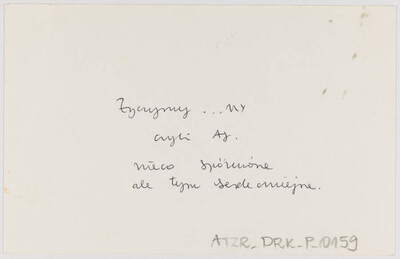 Życzymy ... my
czyli
nieco spóźnione
ale tym serdeczniejsze.
ATZR_DRK_P_0159